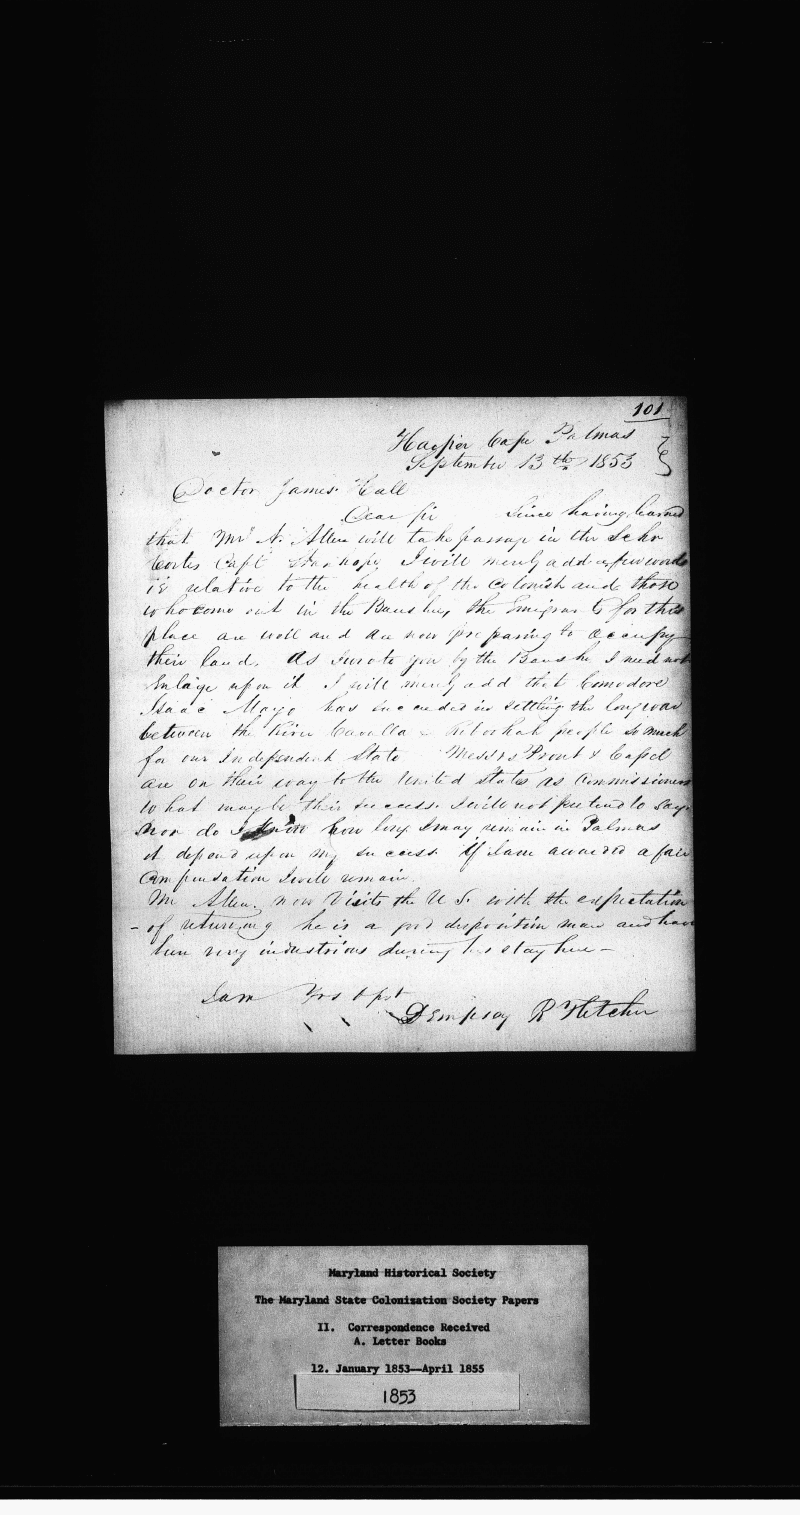 101
Harper Cape Palmas
September 13th 1853
Doctor James Hall
Dear Sir Since having learned
that Mr A. Allen will take passage in the Schr
Cortes Capt I will merely add a few words
is relative to the health of the colonist and those
who come out in the Banshee, the Emigrants for this
place are well and are now preparing to occupy
their land. As I wrote you by the Banshe I need not
Enlarge upon it I will merely add that Comodore
Isaac Mayo has succeeded in settling the long war
between the River Cavalla & people so much
for our Independent State Messrs Prout & Cassel
are on their way to the United States as Commissioners
what may be their success. I will not pretend to say.
nor do I know how long I may remain in Palmas
it depend upon my success. If I am awarded a fair
Compensation I will remain.
Mr Allen. now Visits the U. S. with the expectation
- of returning he is a good disposition man and have
been very industrious during his stay here -
I am Yrs &
Dempsey R Fletcher
Maryland Historical Society
The Maryland State Colonization Society Papers
II. Correspondence Received
A. Letter Books
12. January 1853—April 1855
1853